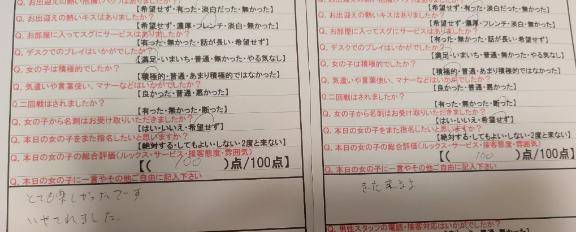 Q. お出迎えの熱い抱擁・ハグはありましたか？
【希望せず・有った・淡白だった・無かった】
Q. お出迎えの熱いキスはありましたか？
【希望せず・濃厚・フレンチ・淡白・無かった】
Q. お部屋に入ってスグにサービスはありましたか？
【有った・無かった・話が長い・希望せず】
Q. デスクでのプレイはいかがでしたか？
【満足・いまいち・普通・無かった・やる気なし】
Q. 女の子は積極的でしたか？
【積極的・普通・あまり積極的ではなかった】
Q. 気遣いや言葉使い、マナーなどはいかがでしたか？
【良かった・普通・悪かった】
Q. 二回戦はされましたか？
【有った・無かった・断った】
Q. 女の子から名刺はお受け取りいただきましたか？
【はい・いいえ・希望せず】
Q. 本日の女の子をまた指名したいと思いますか？
【絶対する・してもよい・しない・2度と来ない】
Q. 本日の女の子の総合評価（ルックス・サービス・接客態度・雰囲気）
【( 100 )点/100点】
Q. 本日の女の子に一言やその他ご自由に記入下さい
とても楽しかったです
いやされました。
【希望せず・有った・淡白だった・無かった】
Q. お出迎えの熱いキスはありましたか？
【希望せず・濃厚・フレンチ・淡白・無かった】
Q. お部屋に入ってスグにサービスはありましたか？
【有った・無かった・話が長い・希望せず】
Q. デスクでのプレイはいかがでしたか？
【満足・いまいち・普通・無かった・やる気なし】
Q. 女の子は積極的でしたか？
【積極的・普通・あまり積極的ではなかった】
Q. 気遣いや言葉使い、マナーなどはいかがでしたか？
【良かった・普通・悪かった】
Q. 二回戦はされましたか？
【有った・無かった・断った】
Q. 女の子から名刺はお受け取りいただきましたか？
【はい・いいえ・希望せず】
Q. 本日の女の子をまた指名したいと思いますか？
【絶対する・してもよい・しない・2度と来ない】
Q. 本日の女の子の総合評価（ルックス・サービス・接客態度・雰囲気）
【( 100 )点/100点】
Q. 本日の女の子に一言やその他ご自由に記入下さい
また来るよ
Q. 男性スタッフの電話・接客対応はいかがでしたか？